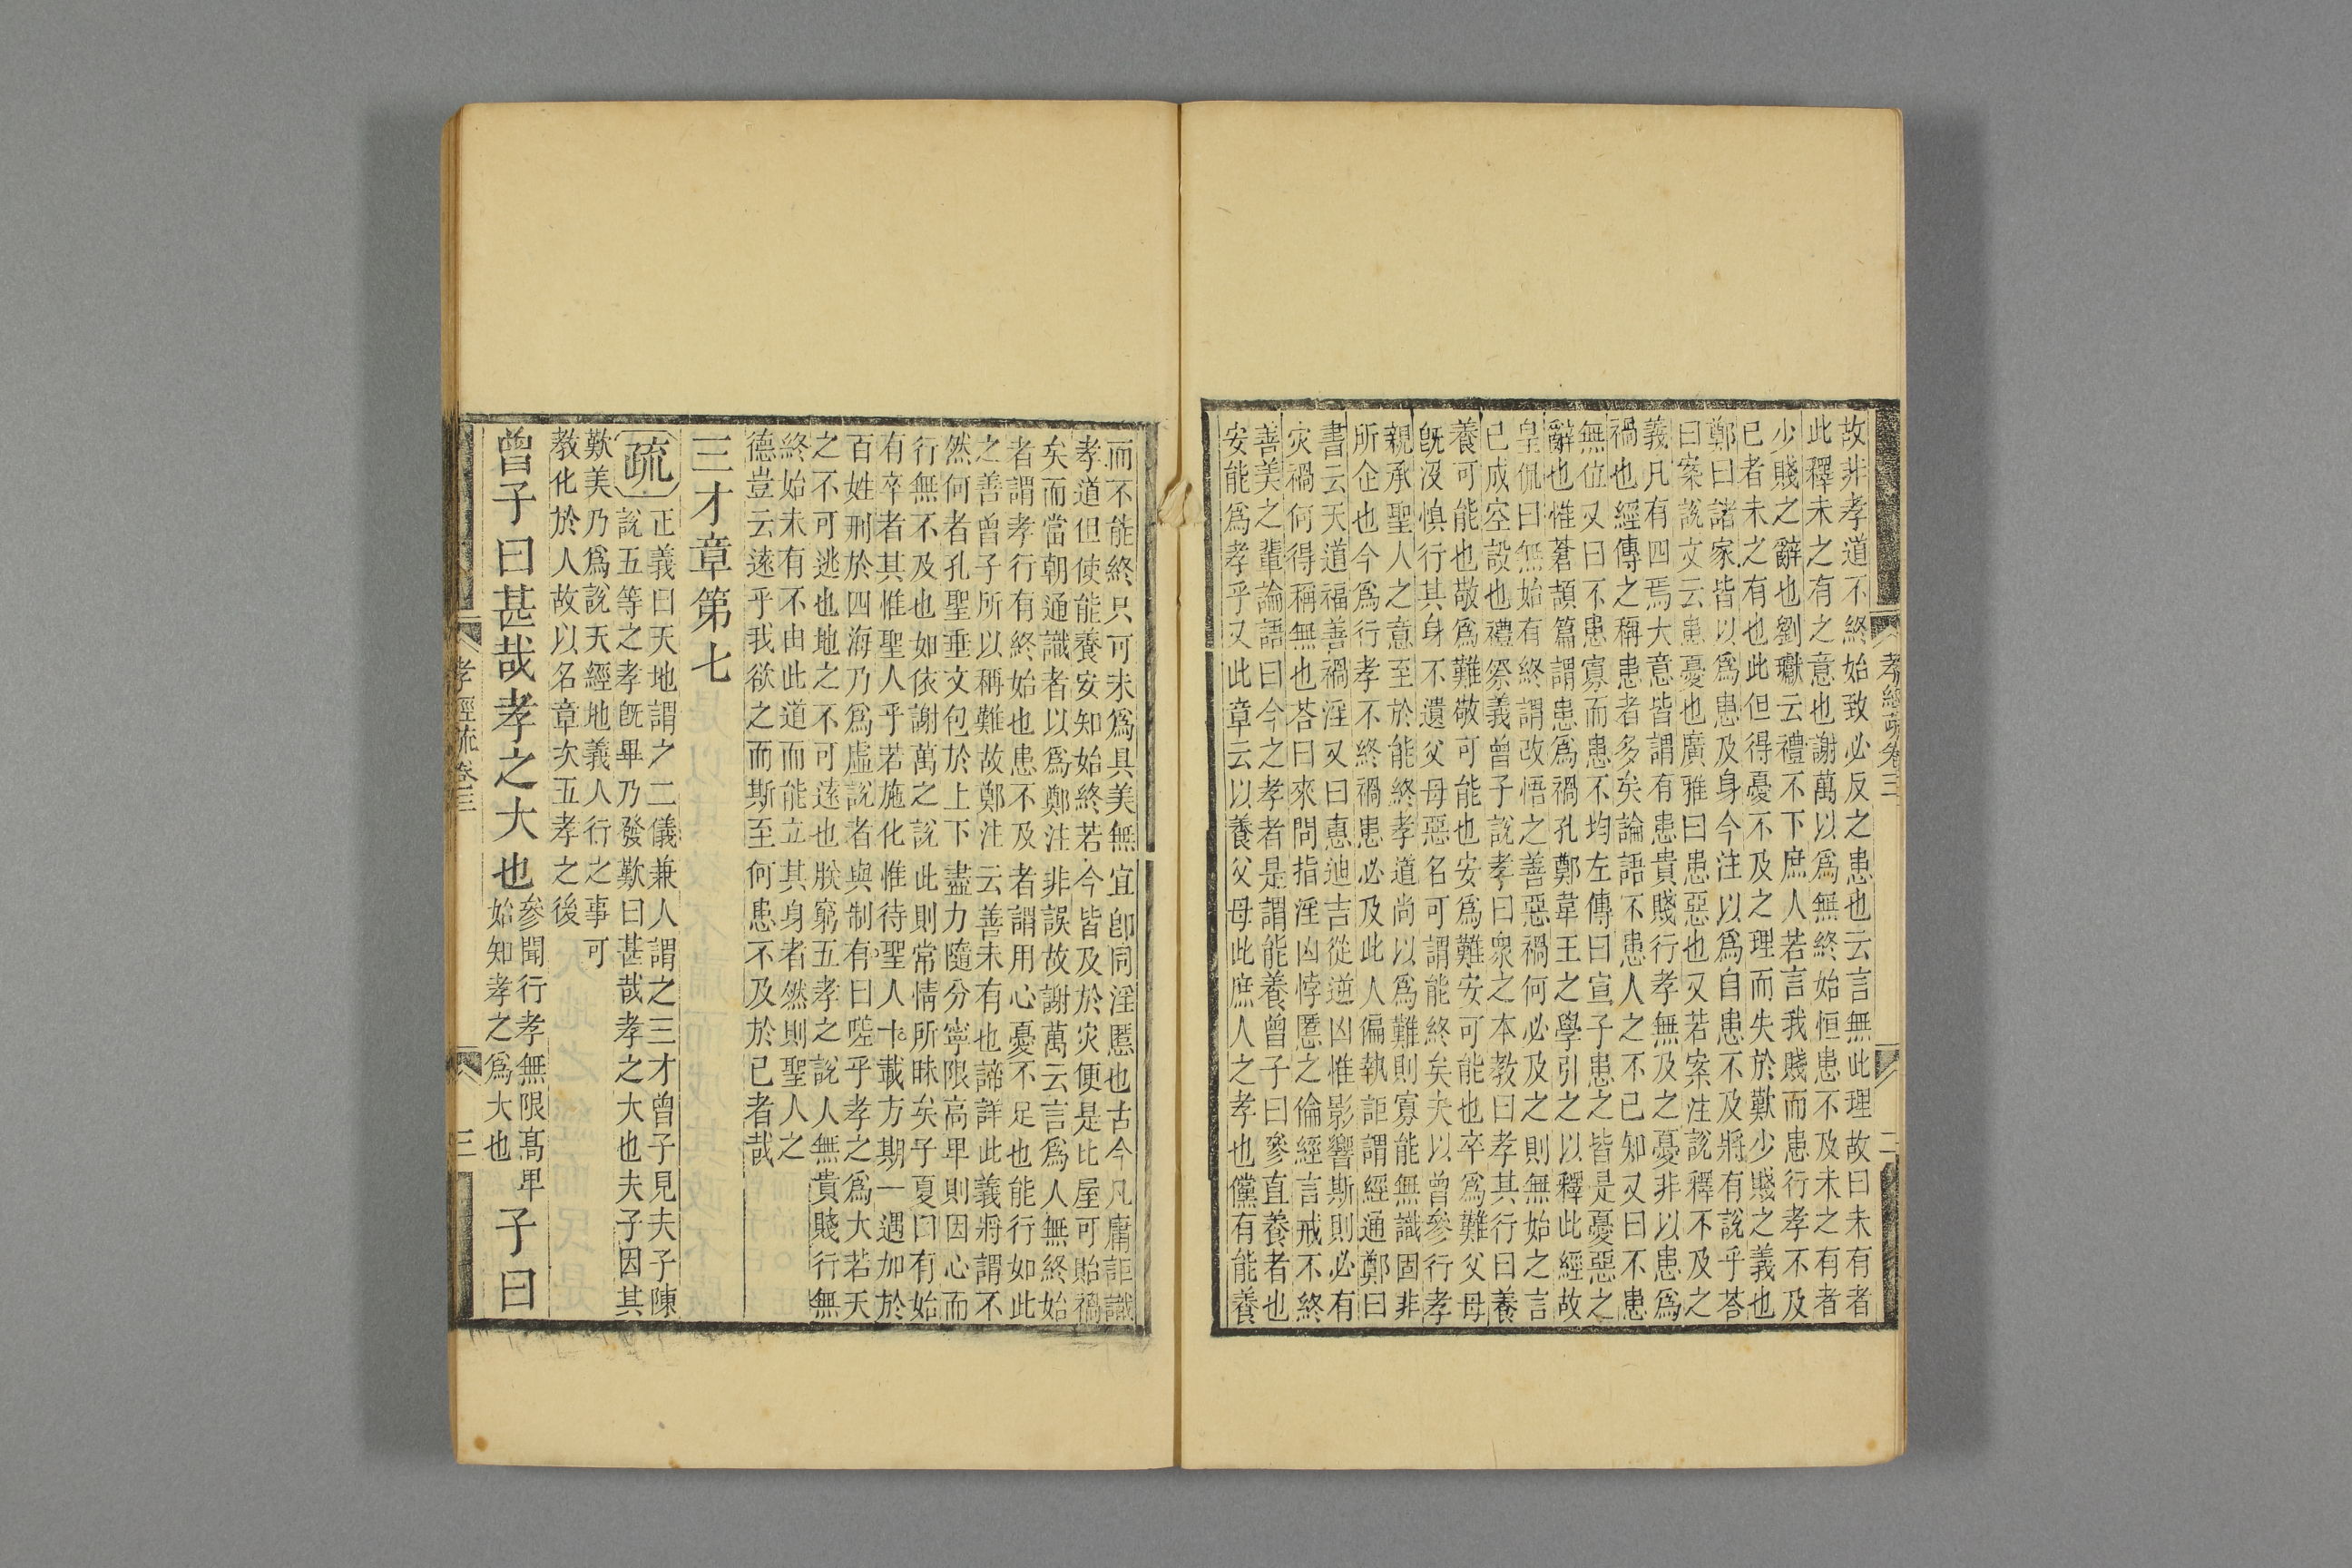 故非孝道不終始致必反之患也云言無此理故曰未有者
此釋未之有之意也謝萬以爲無終始恒患不及未之有者
少賤之辭也劉瓛云禮不下庶人若言我賤而患行孝不及
已者未之有也此但得憂不及之理而失於歎少賤之義也
鄭曰諸家皆以爲患及身今注以爲自患不及將有說乎荅
曰案說文云患憂也廣雅曰患惡也又若案注說釋不及之
義凡有四焉大意皆謂有患貴賤行孝無及之憂非以患爲
禍也經傳之稱患者多矣論語不患人之不已知又曰不患
無位又曰不患寡而患不均左傳曰宣子患之皆是憂惡之
辭也惟蒼頡篇謂患爲禍孔鄭韋王之學引之以釋此經故
皇侃曰無始有終謂改悟之善惡禍何必及之則無始之言
已成空設也禮祭義曾子說孝曰衆之本教曰孝其行曰養
養可能也敬爲難敬可能也安爲難安可能也卒爲難父母
旣沒慎行其身不遺父母惡名可謂能終矣夫以曾參行孝
親承聖人之意至於能終孝道尚以爲難則寡能無識固非
所企也今爲行孝不終禍患必及此人偏執詎謂經通鄭曰
書云天道福善禍淫又曰惠迪吉從逆凶惟影響斯則必有
灾禍何得稱無也荅曰來問指淫凶悖慝之倫經言戒不終
善美之輩論語曰今之孝者是謂能養曾子曰參直養者也
安能爲孝乎又此章云以養父母此庶人之孝也儻有能養
孝經疏卷三
二
而不能終只可未爲具美無宜卽同淫慝也古今凡庸詎識
孝道但使能養安知始終若今皆及於灾便是比屋可貽禍
矣而當朝通識者以爲鄭注非誤故謝萬云言爲人無終始
者謂孝行有終始也患不及者謂用心憂不足也能行如此
之善曾子所以稱難故鄭注云善未有也諦詳此義將謂不
然何者孔聖垂文包於上下盡力隨分寧限高卑則因心而
行無不及也如依謝萬之說此則常情所昧矣子夏曰有始
有卒者其惟聖人乎若施化惟待聖人千載方期一遇加於
百姓刑於四海乃爲虛說者與制有曰嗟乎孝之爲大若天
之不可逃也地之不可遠也朕窮五孝之說人無貴賤行無
終始未有不由此道而能立其身者然則聖人之
德豈云遠乎我欲之而斯至何患不及於已者哉
三才章第七
疏 正義曰天地謂之二儀兼人謂之三才曾子見夫子陳
說五等之孝旣畢乃發歎曰甚哉孝之大也夫子因其
歎美乃爲說天經地義人行之事可
教化於人故以名章次五孝之後
曾子曰甚哉孝之大也 參聞行孝無限高卑始知孝之爲大也 子曰
孝經疏卷三
三